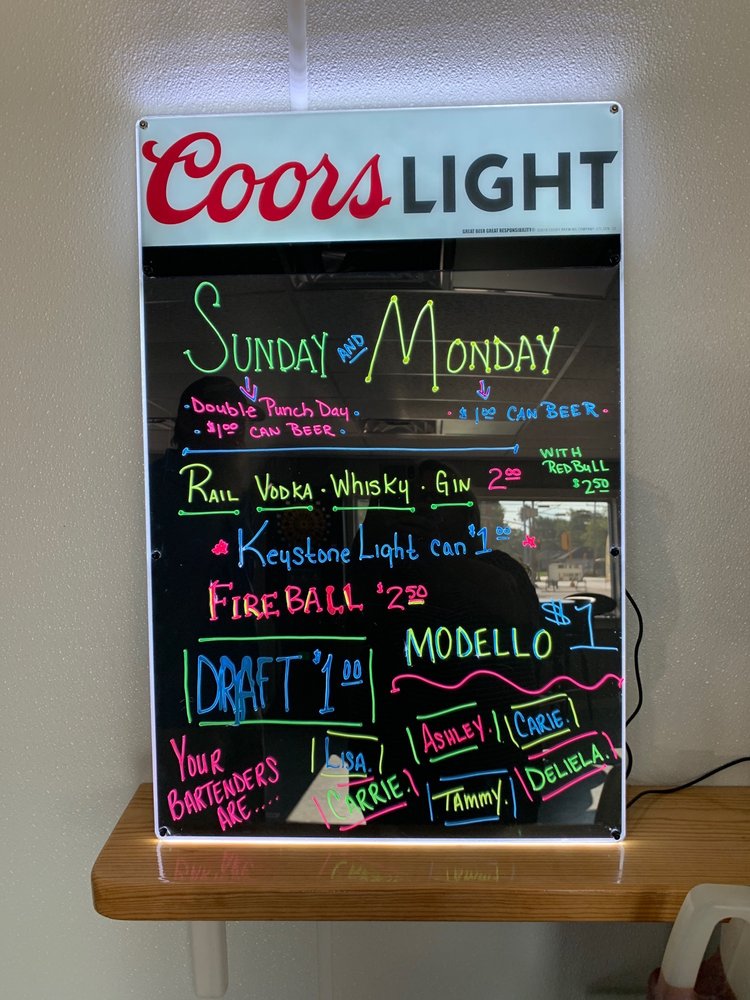 Coors LIGHT
GREAT BEER GREAT RESPONSIBILITY
SUNDAY AND MONDAY
·Double Punch Day·
· $1.00 CAN BEER ·
· $1.00 CAN BEER ·
RAIL VODKA · WHISKY · GIN 2.00
WITH
RED BULL
$2.50
Keystone Light can $1.00
FIREBALL $2.50
MODELLO $1
DRAFT $1.00
YOUR
BARTENDERS
ARE....
LISA.
ASHLEY.
CARIE.
CARRIE.
TAMMY.
DELIELA.